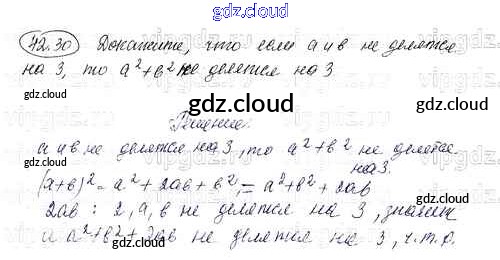 gdz.cloud
42.30 Докажите, что если а и в не делятся
на 3, то a²+в² не делятся на 3
Решение:
а и в не делятся на 3, то a²+в² не делятся
на 3.
(a+в)² = a²+2ав+в², = a²+в²+2ав
2ав : 2, а, в не делятся на 3, значит
и a²+в²+2ав не делятся на 3, ч.т.д.
gdz.cloud